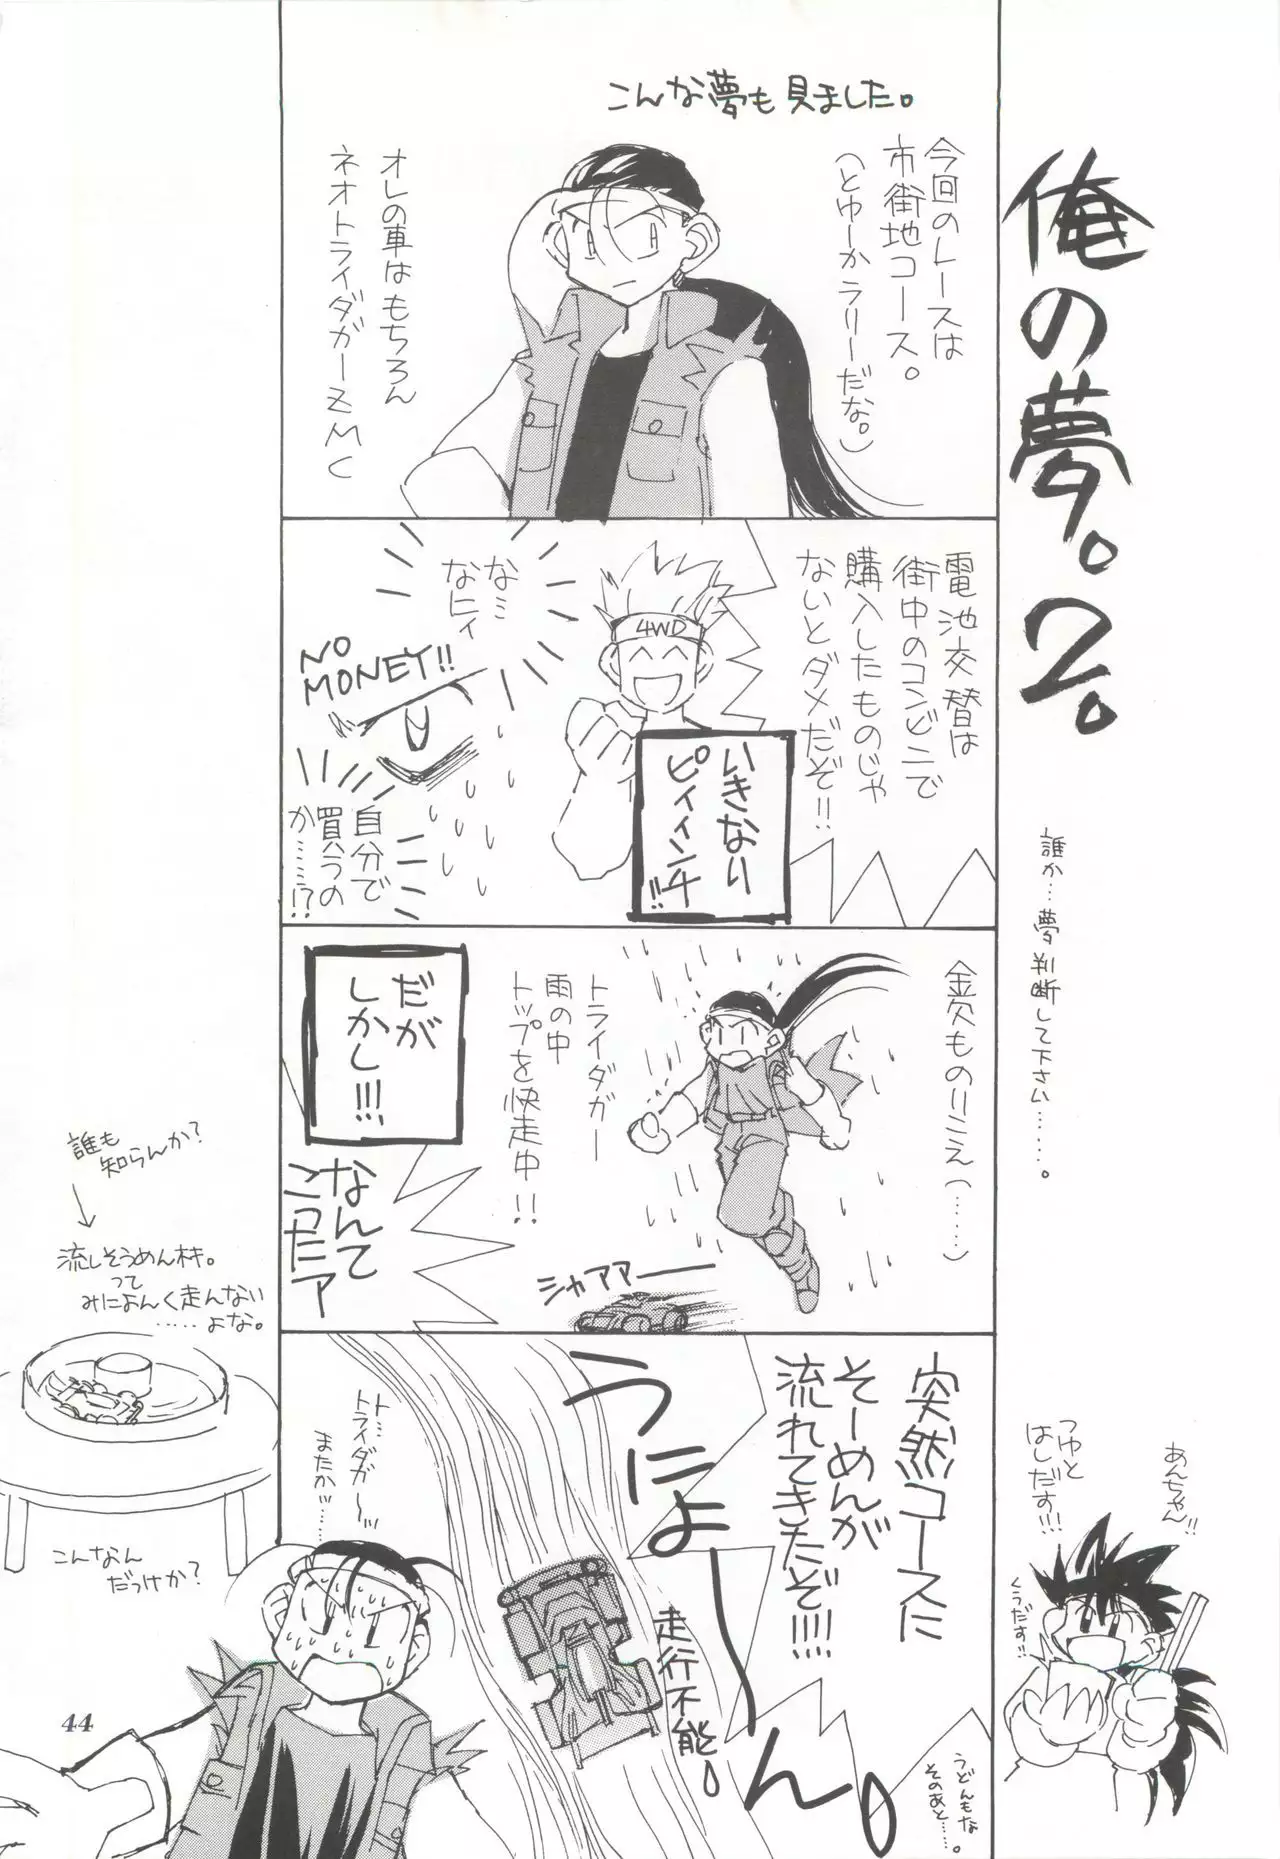 俺の夢。2。
誰か…夢判断して下さい……。
こんな夢も見ました。
今回のレースは
市街地コース。
(とゆーかラリーだな。)
オレの車はもちろん
ネオトライダガーZMC
電池交替は
街中のコンビニで
購入したものじゃ
ないとダメだぞ!!
4WD
いきなり
ピィィンチ!!
な…
なにィ
NO
MONEY!!
自分で
買うの
か……!?
金欠ものりこえ(……)
トライダガー
雨の中
トップを快走中!!
シャアアー
だが
しかし!!!
なんて
こったア
突然コースに
そーめんが
流れてきたぞ!!!!
うにょーん。
走行不能。
ト…
トライダガ〜ッ
またかッ…
うどんもな
そのあと……。
あんちゃん!!
つゆと
はしだす!!!
くうだす!!
誰も
知らんか?
流しそうめんキ。
って
みによんく走んない
……よな。
こんなん
だっけか?
44